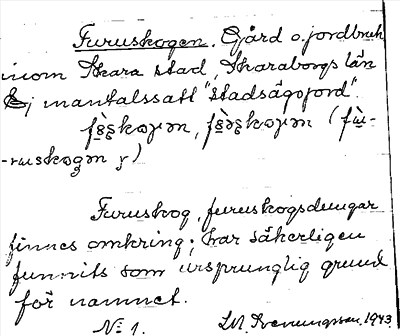 Furuskogen. Gård o. jordbruk
inom Skara stad, Skaraborgs län
Ej mantalssatt "stadsägojord".
Furuskog, furuskogsdungar
finnes omkring; har säkerligen
funnits som ursprunglig grund
för namnet.
No 1. 1943